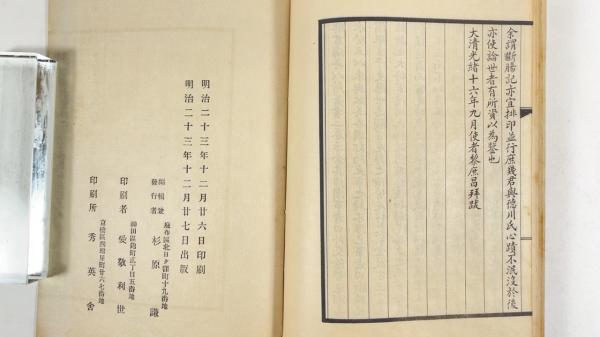 余謂斷腸記亦宜排印並行庶幾君與德川氏心蹟不泯沒於後
亦使論世者有所資以為鑒也
大清光緒十六年九月使者黎庶昌拜跋
明治二十三年十二月廿六日印刷
明治二十三年十二月廿七日出版
編輯兼
發行者 杉原謙
麻布區北日ヶ窪町十九番地
印刷者
神田區錦町三丁目五番地
印刷所 秀英舍
京橋區西紺屋町廿六七番地